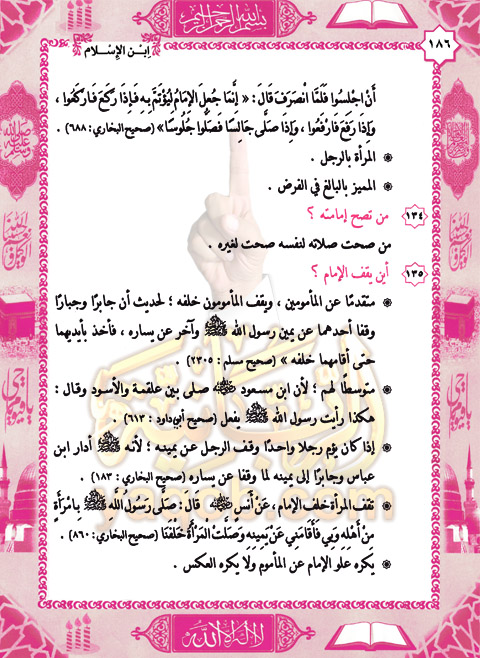 بسم الله الرحمن الرحيم
١٨٦
ابن الإسلام
أَنْ اجْلِسُوا فَلَمَّا انْصَرَفَ قَالَ : « إِنَّمَا جُعِلَ الإِمَامُ لِيُؤْتَمَّ بِهِ فَإِذَا رَكَعَ فَارْكَعُوا ،
وَإِذَا رَفَعَ فَارْفَعُوا ، وَإِذَا صَلَّى جَالِسًا فَصَلُّوا جُلُوسًا » (صحيح البخاري: ٦٨٨) .
❋ المرأة بالرجل .
❋ المميز بالبالغ في الفرض .
١٣٤ من تصح إمامته ؟
من صحت صلاته لنفسه صحت لغيره .
١٣٥ أين يقف الإمام ؟
❋ متقدمًا عن المأمومين ، ويقف المأمومون خلفه ؛ لحديث أن جابرًا وجبارًا
وقفا أحدهما عن يمين رسول الله ﷺ وآخر عن يساره ، فأخذ بأيديهما
حتى أقامهما خلفه » (صحيح مسلم : ٢٣٠٥) .
❋ متوسطًا لهم ؛ لأن ابن مسعود رضي الله عنه صلى بين علقمة والأسود وقال :
هكذا رأيت رسول الله ﷺ يفعل (صحيح أبي داود : ٦١٣) .
❋ إذا كان يؤم رجلا واحدًا وقف الرجل عن يمينه ؛ لأنه ﷺ أدار ابن
عباس وجابرًا إلى يمينه لما وقفا عن يساره (صحيح البخاري : ١٨٣) .
❋ تقف المرأة خلف الإمام ، عَنْ أَنَسٍ رضي الله عنه قَالَ : صَلَّى رَسُولُ اللَّهِ ﷺ بِامْرَأَةٍ
مِنْ أَهْلِهِ وَبِي فَأَقَامَنِي عَنْ يَمِينِهِ وَصَلَّتْ الْمَرْأَةُ خَلْفَنَا (صحيح البخاري: ٨٦٠) .
❋ يكره علو الإمام عن المأموم ولا يكره العكس .
لا إله إلا الله